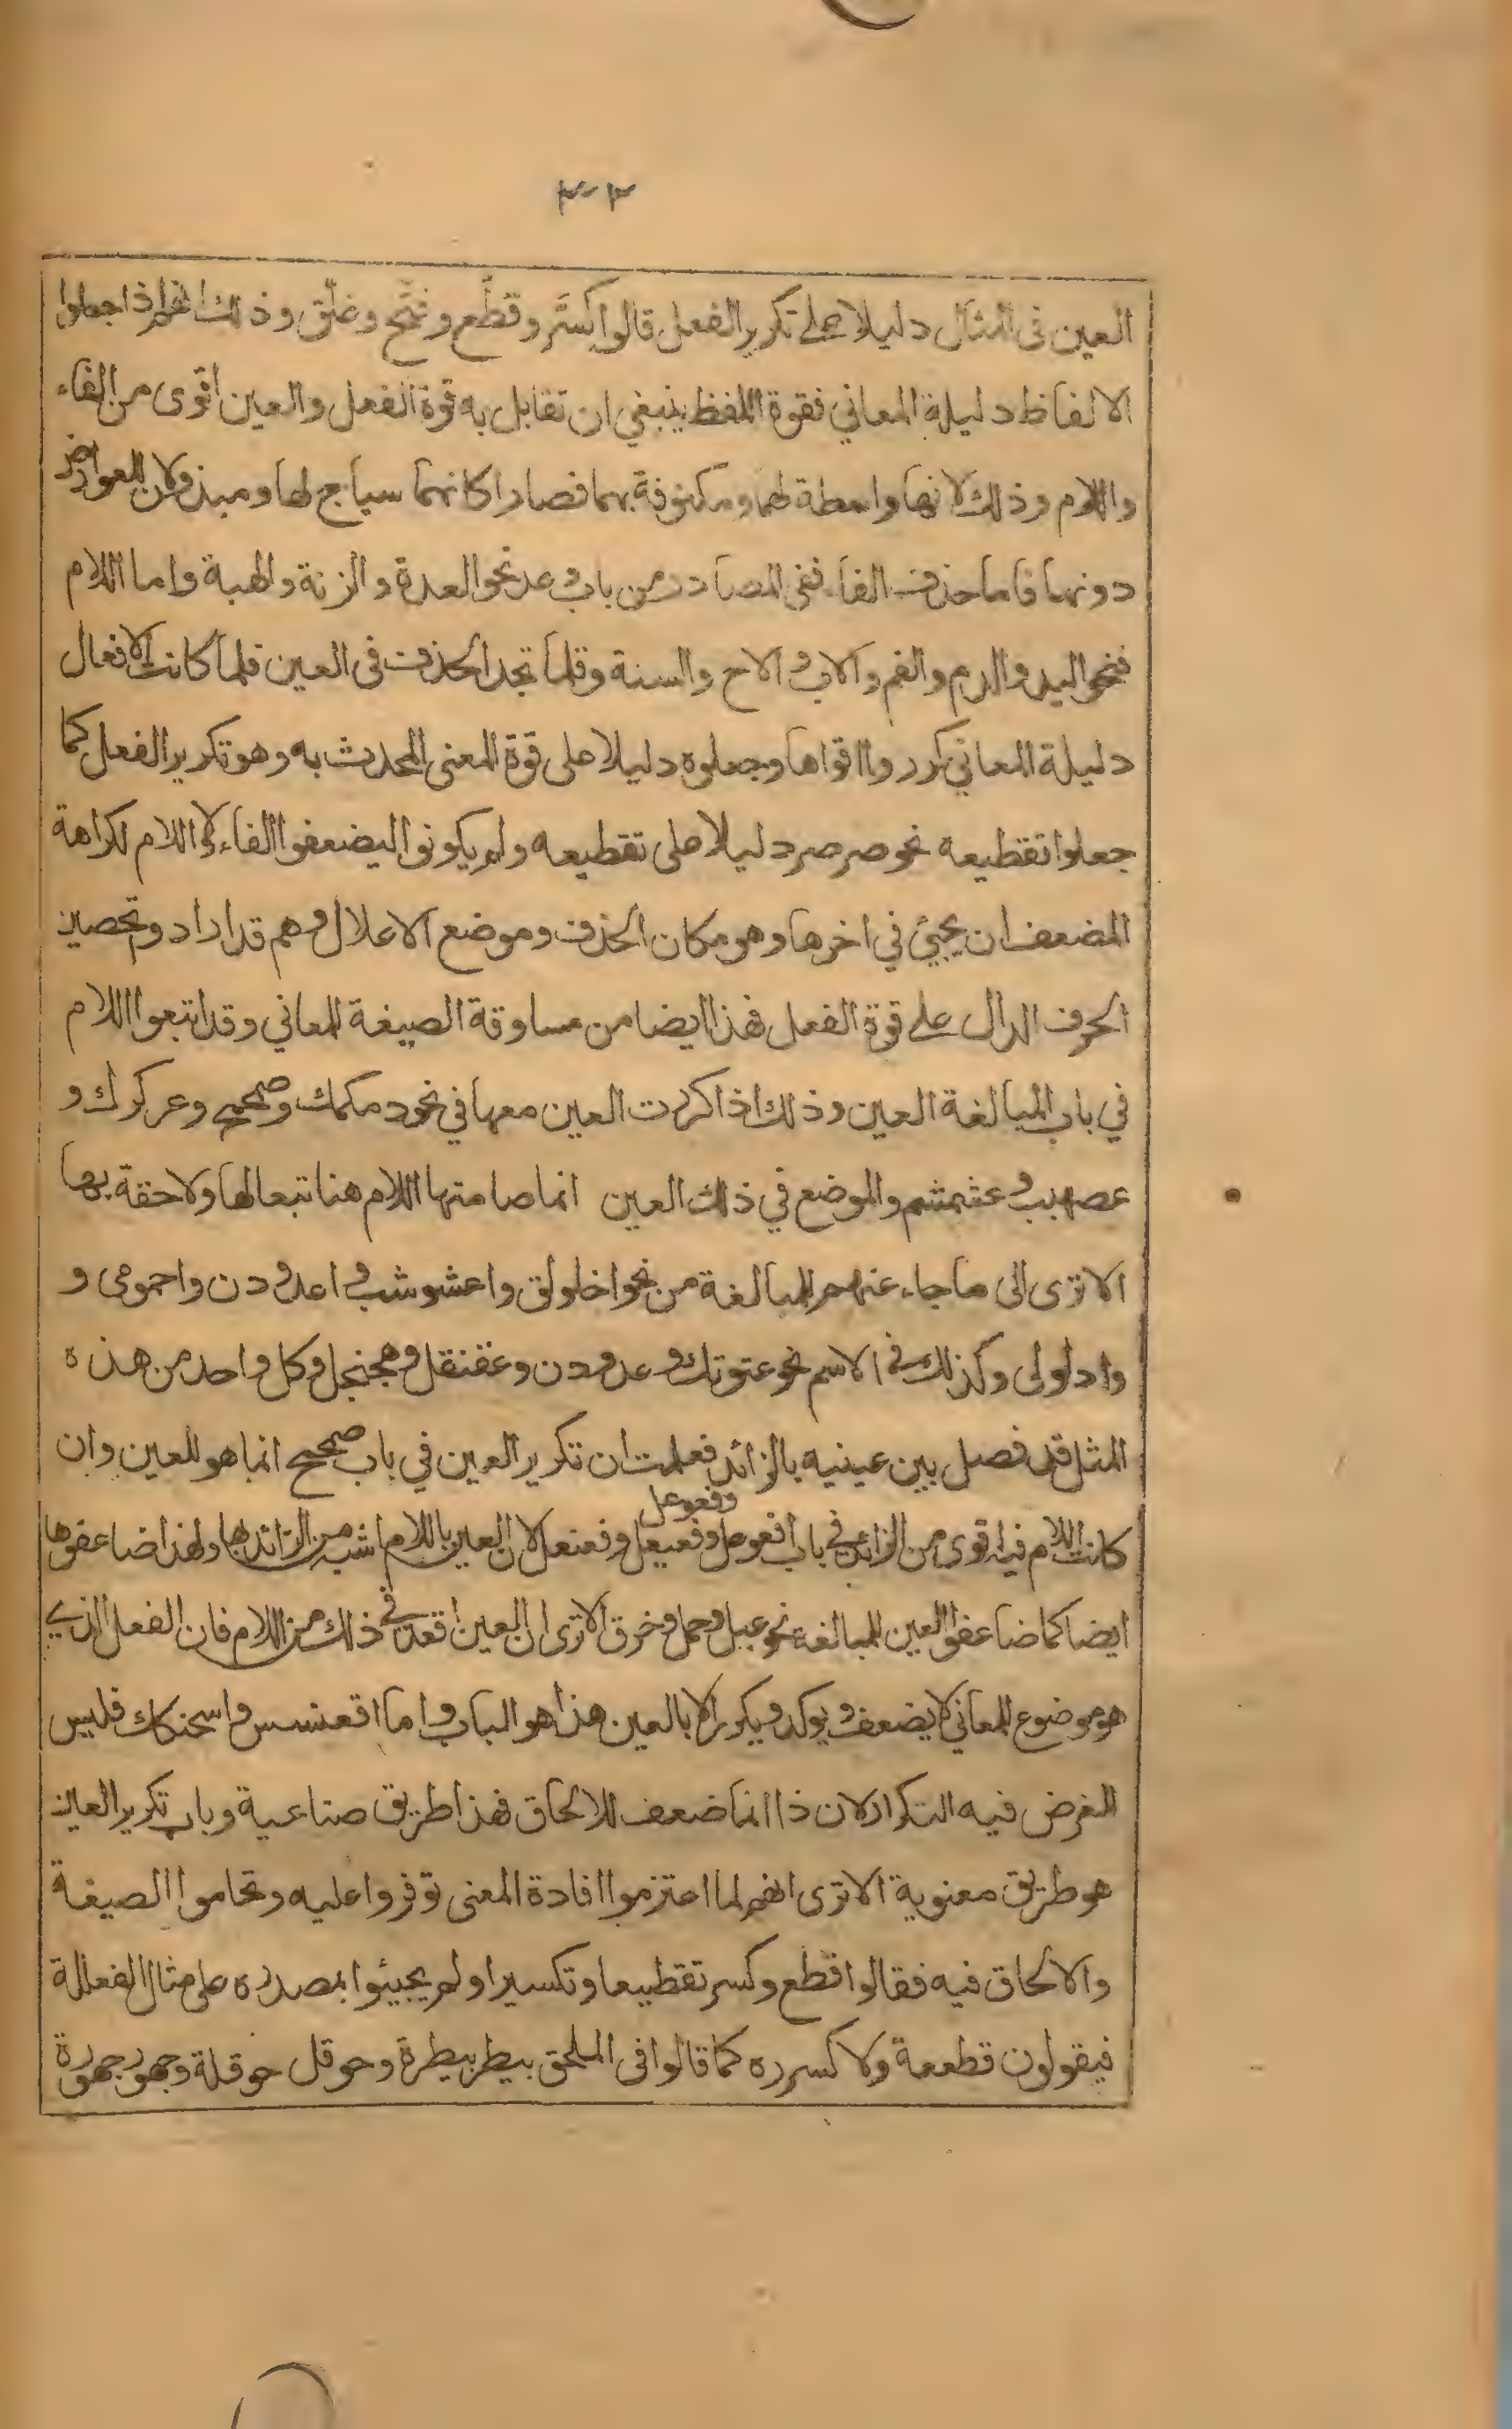 ٣٠٢
العين فى المثال دليلا على تكرير الفعل قالوا كسَّر وقطَّع وفتَّح وغلَّق وذلك انهم اذا جعلوا
الالفاظ دليلة المعاني فقوة اللفظ ينبغي ان تقابل به قوة الفعل والعين اقوى من الفاء
واللام وذلك لانها واسطة لهما ومكنوفة بهما فصارا كانهما سياج لها ومبذولان للعوارض
دونها فاما حذف الفاء ففي المصادر من باب وعد نحو العدة والزنة والهبة واما اللام
فنحو اليد والدم والفم والاب والاخ والسنة وقلما تجد الحذف فى العين فلما كانت الافعال
دليلة المعاني كرروا اقواها وجعلوه دليلا على قوة المعنى المحدث به وهو تكرير الفعل كما
جعلوا تقطيعه نحو صرصر دليلا على تقطيعه ولم يكونوا ليضعفوا الفاء ولا اللام لكراهة
المضعف ان يجيئ في اخرها وهو مكان الحذف وموضع الاعلال وهم قد ارادوا تحصين
الحرف الدال على قوة الفعل فهذا ايضا من مساوقة الصيغة للمعاني وقد اتبعوا اللام
في باب المبالغة العين وذلك اذا كررت العين معها في نحو دمكمك وصمحمح وعركرك و
عصبصب وغشمشم والموضع في ذلك العين انما ضامتها اللام هنا تبعا لها ولاحقة بها
الا ترى الى ما جاء عنهم للمبالغة من نحو اخلولق واعشوشب واغدودن واحمومى و
وادلولى وكذلك فى الاسم نحو عثوثل وغدودن وعقنقل وهجنجل وكل واحد من هذه
المثل قد فصل بين عينيه بالزائد فعلمت ان تكرير العين في باب صمحمح انما هو للعين وان
وفعوعل
كانت اللام فيه اقوى من الزائد في باب افعوعل وفعيعل وفعنعل لان العين باللام اشبه من الزائد بها ولهذا ضاعفوها
ايضا كما ضاعفوا العين للمبالغة نحو عتل وحمل وخرق الا ترى ان العين اقعد في ذلك من اللام فان الفعل الذي
هو موضوع للمعاني لا يضعف ويوكد ويكرر الا بالعين هذا هو الباب واما اقعنسس واسحنكك فليس
الغرض فيه التكرار لان ذا انما ضعف للالحاق فهذا طريق صناعية وباب تكرير العين
هو طريق معنوية الا ترى انهم لما اعتزموا افادة المعنى توفروا عليه وتحاموا الصيغة
والالحاق فيه فقالوا قطع وكسر تقطيعا وتكسيرا ولم يجيئوا بمصدره على مثال الفعللة
فيقولون قطععة ولا كسرره كما قالوا فى الملحق بيطر بيطرة وحوقل حوقلة وجهور جهورة